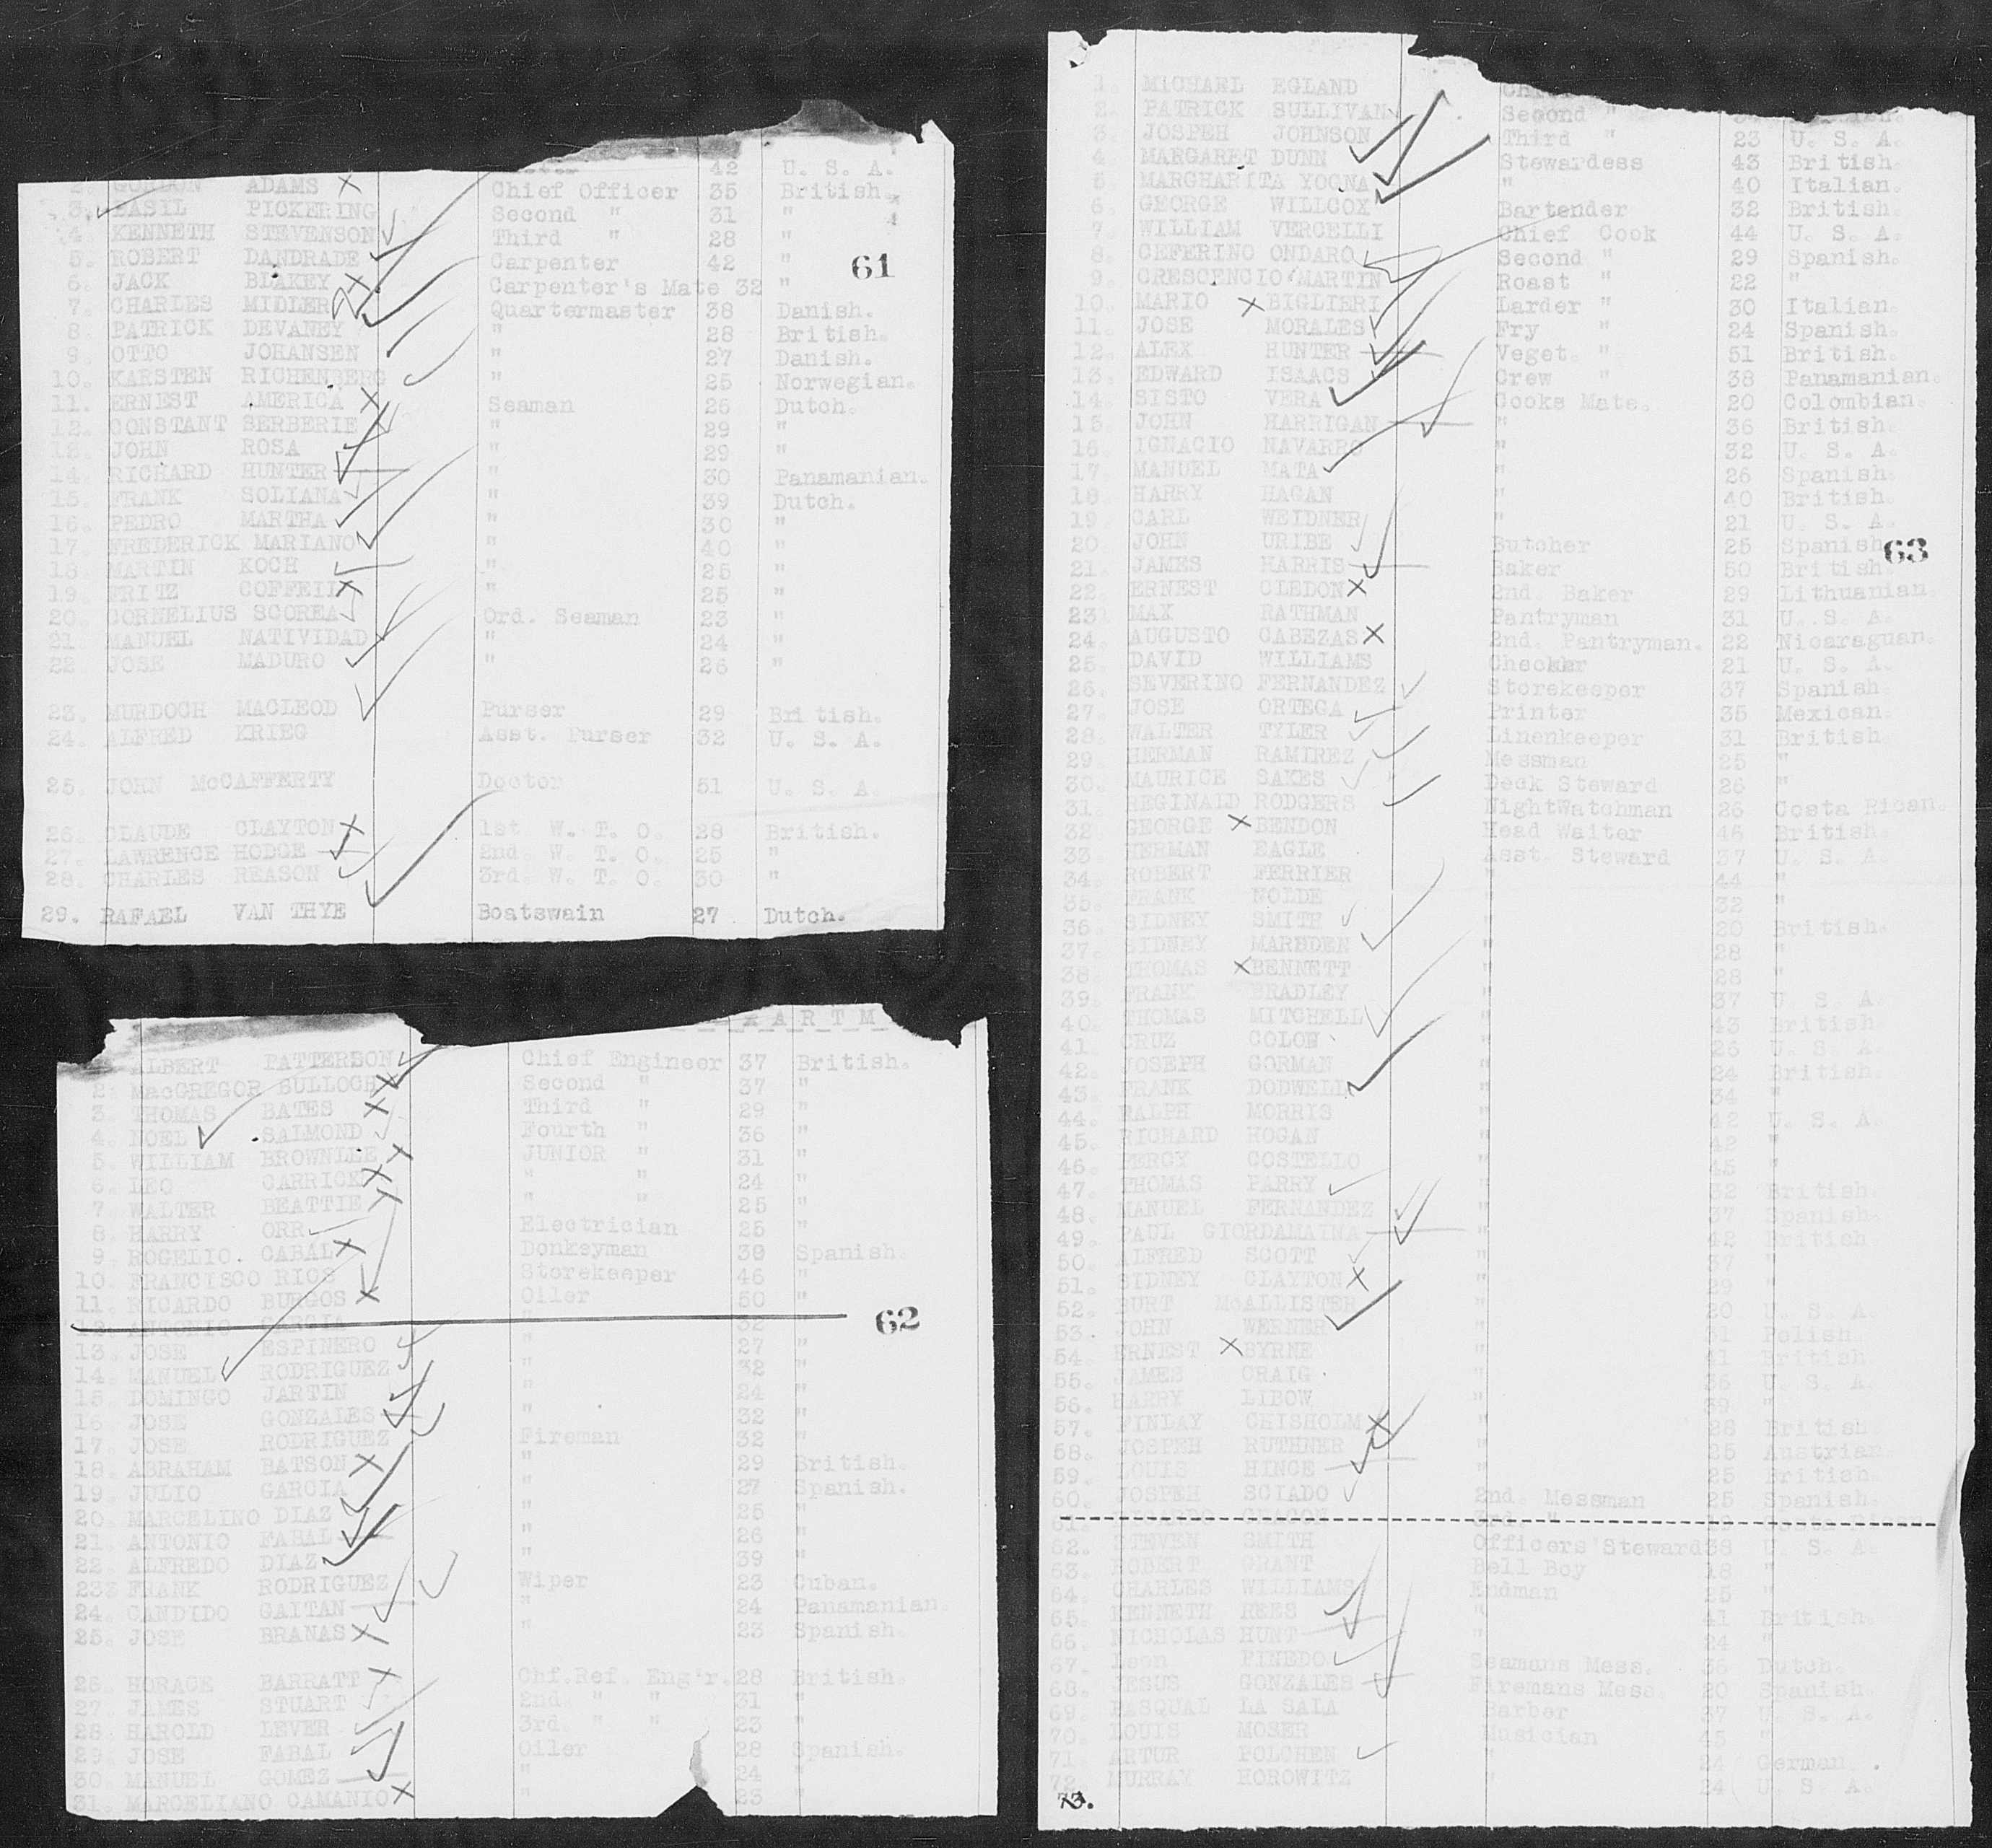 42 U. S. A.
2. GORDON ADAMS Chief Officer 35 British.
3. BASIL PICKERING Second " 31 "
4. KENNETH STEVENSON Third " 28 "
5. ROBERT DANDRADE Carpenter 42 "
61
6. JACK BLAKEY Carpenter's Mate 32 "
7. CHARLES MIDLER Quartermaster 38 Danish.
8. PATRICK DEVANEY " 28 British.
9. OTTO JOHANSEN " 27 Danish.
10. KARSTEN RICHENBERG " 25 Norwegian.
11. ERNEST AMERICA Seaman 26 Dutch.
12. CONSTANT BERBERIE " 29 "
13. JOHN ROSA " 29 "
14. RICHARD HUNTER " 30 Panamanian.
15. FRANK SOLIANA " 39 Dutch.
16. PEDRO MARTHA " 30 "
17. FREDERICK MARIANO " 40 "
18. MARTIN KOCH " 25 "
19. FRITZ COFFEIL " 25 "
20. CORNELIUS SCOREA Ord. Seaman 23 "
21. MANUEL NATIVIDAD " 24 "
22. JOSE MADURO " 26 "
23. MURDOCH MACLEOD Purser 29 British.
24. ALFRED KRIEG Asst. Purser 32 U. S. A.
25. JOHN McCAFFERTY Doctor 51 U. S. A.
26. CLAUDE CLAYTON 1st W. T. O. 28 British.
27. LAWRENCE HODGE 2nd. W. T. O. 25 "
28. CHARLES REASON 3rd. W. T. O. 30 "
29. RAFAEL VAN THYE Boatswain 27 Dutch.
A R T M
ALBERT PATTERSON Chief Engineer 37 British.
2. MacGREGOR BULLOCH Second " 37 "
3. THOMAS BATES Third " 29 "
4. NOEL SALMOND Fourth " 36 "
5. WILLIAM BROWNLEE JUNIOR " 31 "
6. LEO CARRICK " " 24 "
7. WALTER BEATTIE " " 25 "
8. HARRY ORR Electrician 25 "
9. ROGELIO. CABAL Donkeyman 38 Spanish.
10. FRANCISCO RIOS Storekeeper 46 "
11. RICARDO BURGOS Oiler 50 "
12. ANTONIO GARCIA " 32 "
62
13. JOSE ESPINERO " 27 "
14. MANUEL RODRIGUEZ " 32 "
15. DOMINGO JARTIN " 24 "
16. JOSE GONZALES " 32 "
17. JOSE RODRIGUEZ Fireman 32 "
18. ABRAHAM BATSON " 29 British.
19. JULIO GARCIA " 27 Spanish.
20. MARCELINO DIAZ " 25 "
21. ANTONIO FABAL " 26 "
22. ALFREDO DIAZ " 39 "
23. FRANK RODRIGUEZ Wiper 23 Cuban.
24. CANDIDO GAITAN " 24 Panamanian.
25. JOSE BRANAS " 23 Spanish.
26. HORACE BARRATT Chf.Ref. Eng'r. 28 British.
27. JAMES STUART 2nd. " " 31 "
28. HAROLD LEVER 3rd. " " 23 "
29. JOSE FABAL Oiler 28 Spanish.
30. MANUEL GOMEZ " 24 "
31. MARCELIANO CAMANIO " 23 "
1. MICHAEL EGLAND
2. PATRICK SULLIVAN Second "
3. JOSPEH JOHNSON Third " 23 U. S. A.
4. MARGARET DUNN Stewardess 43 British.
5 MARGHARITA YOGNA " 40 Italian.
6. GEORGE WILLCOX Bartender 32 British.
7. WILLIAM VERCELLI Chief Cook 44 U. S. A.
8. CEFERINO ONDARO Second " 29 Spanish.
9. CRESCENCIO MARTIN Roast " 22 "
10. MARIO BIGLIERI Larder " 30 Italian.
11. JOSE MORALES Fry " 24 Spanish.
12. ALEX HUNTER Veget. " 51 British.
13. EDWARD ISAACS Crew " 38 Panamanian.
14. SISTO VERA Cooks Mate. 20 Colombian.
15. JOHN HARRIGAN " 36 British.
16. IGNACIO NAVARRO " 32 U. S. A.
17. MANUEL MATA " 26 Spanish.
18. HARRY HAGAN " 40 British.
19. CARL WEIDNER " 21 U. S. A.
20. JOHN URIBE Butcher 25 Spanish.
63
21. JAMES HARRIS Baker 50 British.
22. ERNEST CLEDON 2nd. Baker 29 Lithuanian.
23. MAX RATHMAN Pantryman 31 U. S. A.
24. AUGUSTO CABEZAS 2nd. Pantryman. 22 Nicaraguan.
25. DAVID WILLIAMS Checker 21 U. S. A.
26. SEVERINO FERNANDEZ Storekeeper 37 Spanish.
27. JOSE ORTEGA Printer 35 Mexican.
28. WALTER TYLER Linenkeeper 31 British.
29. HERMAN RAMIREZ Messman 25 "
30. MAURICE SAKES Deck Steward 26 "
31. REGINALD RODGERS NightWatchman 26 Costa Rican.
32. GEORGE BENDON Head Waiter 46 British.
33. HERMAN EAGLE Asst. Steward 37 U. S. A.
34. ROBERT FERRIER " 44 "
35. FRANK NOLDE " 32 "
36. SIDNEY SMITH " 20 British.
37. SIDNEY MARSDEN " 28 "
38. THOMAS BENNETT " 28 "
39. FRANK BRADLEY " 37 U. S. A.
40. THOMAS MITCHELL " 43 British.
41. CRUZ COLON " 25 U. S. A.
42. JOSEPH GORMAN " 24 British.
43. FRANK DODWELL " 34 "
44. RALPH MORRIS " 42 U. S. A.
45. RICHARD HOGAN " 42 "
46. PERCY COSTELLO " 45 "
47. THOMAS PARRY " 32 British.
48. MANUEL FERNANDEZ " 37 Spanish.
49. PAUL GIORDAMAINA " 42 British.
50. ALFRED SCOTT " 37 "
51. SIDNEY CLAYTON " 29 "
52. BURT McALLISTER " 20 U. S. A.
53. JOHN WERNER " 31 Polish.
54. ERNEST BYRNE " 41 British.
55. JAMES CRAIG " 36 U. S. A.
56. HARRY LIBOW " 39 "
57. FINLAY CHISHOLM " 28 British.
58. JOSPEH RUTHNER " 25 Austrian.
59. LOUIS HINGE " 25 British.
60. JOSPEH SCIADO 2nd. Messman 25 Spanish.
61. Costa Rican.
62. STEVEN SMITH Officers'Steward 38 U. S. A.
63. ROBERT GRANT Bell Boy 18 "
64. CHARLES WILLIAMS Endman 25 "
65. KENNETH REES " 41 British.
66. NICHOLAS HUNT " 24 "
67. Leon PINEDO Seamans Mess. 36 Dutch.
68. JESUS GONZALES Firemans Mess. 20 Spanish.
69. PASQUAL LA SALA Barber 37 U. S. A.
70. LOUIS MOSER Musician 45 "
71. ARTUR POLCHEN " 24 German.
72. MURRAY HOROWITZ " 24 U. S. A.
73.